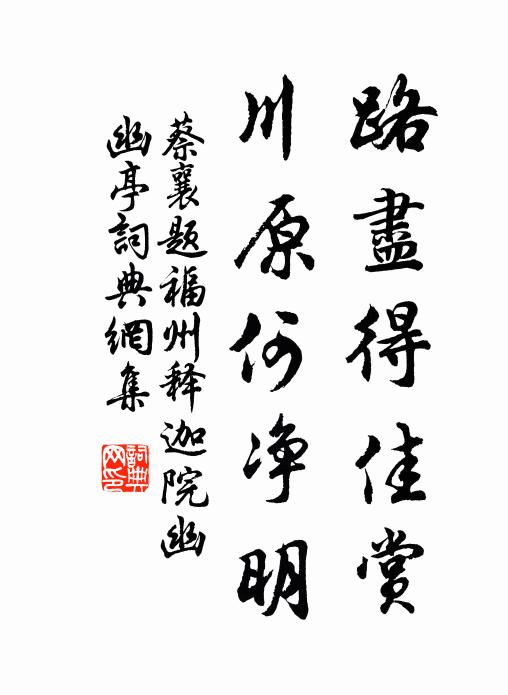 路盡得佳賞
川原何净明
蔡襄題福州释迦院幽
幽亭詞典網集
詞典网印